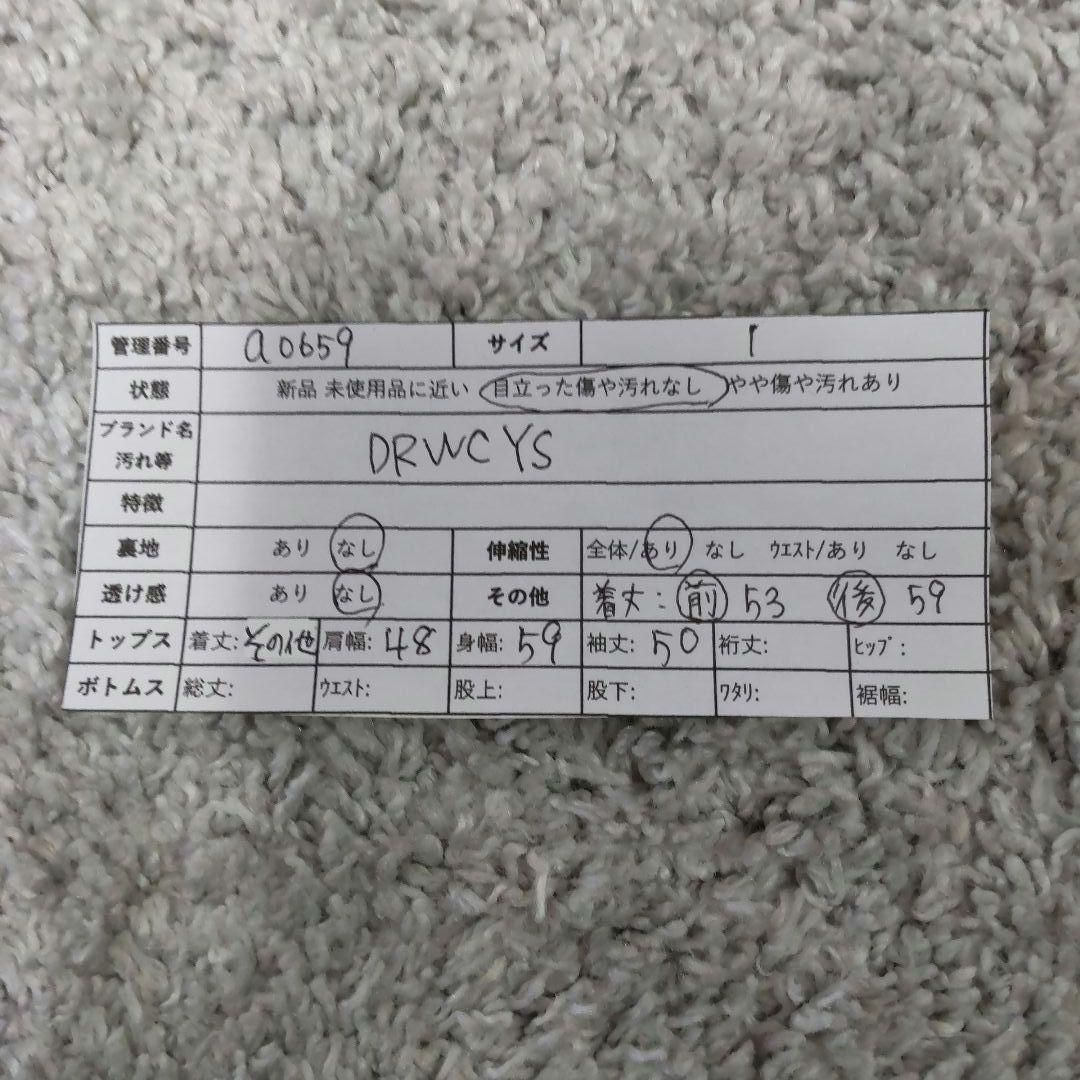 管理番号 a0659 サイズ 1
状態 新品 未使用品に近い 目立った傷や汚れなし やや傷や汚れあり
ブランド名 汚れ等 DRWCYS
特徴
裏地 あり なし 伸縮性 全体/あり なし ｳｴｽﾄ/あり なし
透け感 あり なし その他 着丈:前 53 後 59
トップス 着丈:その他 肩幅:48 身幅:59 袖丈:50 裄丈: ﾋｯﾌﾟ:
ボトムス 総丈: ｳｴｽﾄ: 股上: 股下: ﾜﾀﾘ: 裾幅: